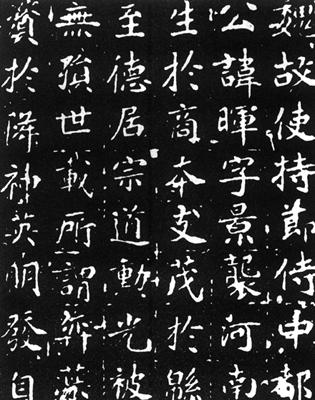 魏故使持節侍中都
公諱暉字景襲河南
生於商本支茂於緜
至德居宗道動光被
無殞世載所謂弈葉
於降神英明發自